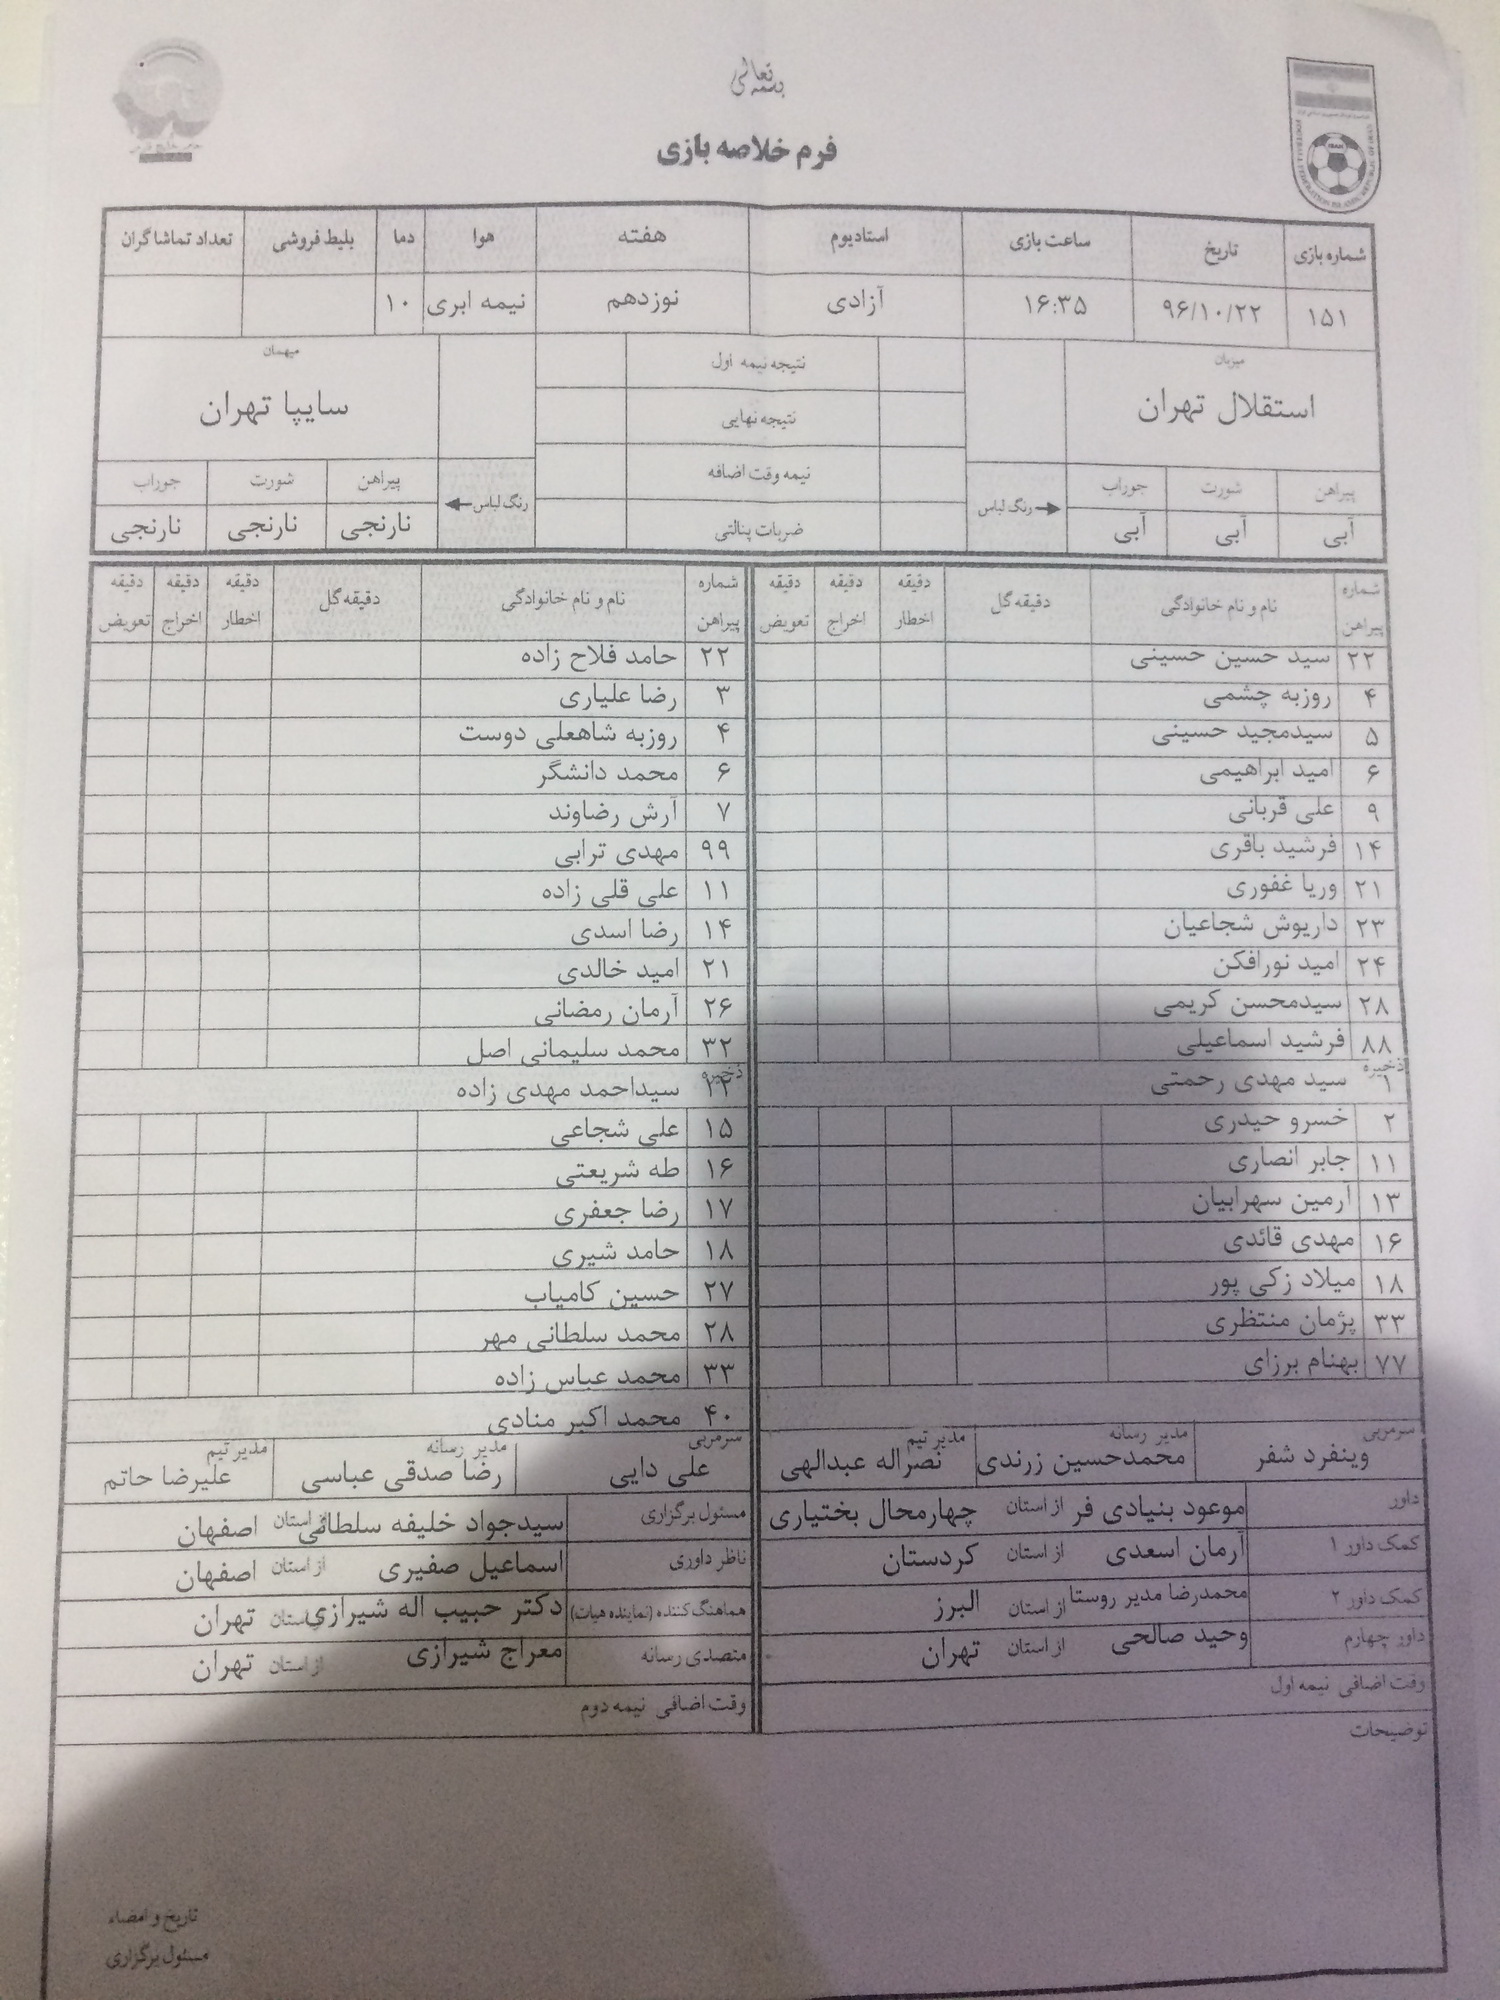 بسمه تعالی
فرم خلاصه بازی
شماره بازی تاریخ ساعت بازی استادیوم هفته هوا دما بلیط فروشی تعداد تماشاگران
۱۵۱ ۹۶/۱۰/۲۲ ۱۶:۳۵ آزادی نوزدهم نیمه ابری ۱۰
میزبان نتیجه نیمه اول میهمان
استقلال تهران نتیجه نهایی سایپا تهران
پیراهن شورت جوراب رنگ لباس نیمه وقت اضافه رنگ لباس پیراهن شورت جوراب
آبی آبی آبی ضربات پنالتی نارنجی نارنجی نارنجی
شماره پیراهن نام و نام خانوادگی دقیقه گل دقیقه اخطار دقیقه اخراج دقیقه تعویض شماره پیراهن نام و نام خانوادگی دقیقه گل دقیقه اخطار دقیقه اخراج دقیقه تعویض
۲۲ سید حسین حسینی ۲۲ حامد فلاح زاده
۴ روزبه چشمی ۳ رضا علیاری
۵ سیدمجید حسینی ۴ روزبه شاهعلی دوست
۶ امید ابراهیمی ۶ محمد دانشگر
۹ علی قربانی ۷ آرش رضاوند
۱۴ فرشید باقری ۹۹ مهدی ترابی
۲۱ وریا غفوری ۱۱ علی قلی زاده
۲۳ داریوش شجاعیان ۱۴ رضا اسدی
۲۴ امید نورافکن ۲۱ امید خالدی
۲۸ سیدمحسن کریمی ۲۶ آرمان رمضانی
۸۸ فرشید اسماعیلی ۳۲ محمد سلیمانی اصل
ذخیره ۱ سید مهدی رحمتی ذخیره سیداحمد مهدی زاده
۲ خسرو حیدری ۱۵ علی شجاعی
۱۱ جابر انصاری ۱۶ طه شریعتی
۱۳ آرمین سهرابیان ۱۷ رضا جعفری
۱۶ مهدی قائدی ۱۸ حامد شیری
۱۸ میلاد زکی پور ۲۷ حسین کامیاب
۳۳ پژمان منتظری ۲۸ محمد سلطانی مهر
۷۷ بهنام برزای ۳۳ محمد عباس زاده
۴۰ محمد اکبر منادی
سرمربی وینفرد شفر مدیر رسانه محمدحسین زرندی مدیر تیم نصراله عبدالهی سرمربی علی دایی مدیر رسانه رضا صدقی عباسی مدیر تیم علیرضا حاتم
داور موعود بنیادی فر از استان چهارمحال بختیاری مسئول برگزاری سیدجواد خلیفه سلطانی از استان اصفهان
کمک داور ۱ آرمان اسعدی از استان کردستان ناظر داوری اسماعیل صفیری از استان اصفهان
کمک داور ۲ محمدرضا مدیر روستا از استان البرز هماهنگ کننده (نماینده هیات) دکتر حبیب اله شیرازی از استان تهران
داور چهارم وحید صالحی از استان تهران متصدی رسانه معراج شیرازی از استان تهران
وقت اضافی نیمه اول وقت اضافی نیمه دوم
توضیحات
تاریخ و امضاء
مسئول برگزاری